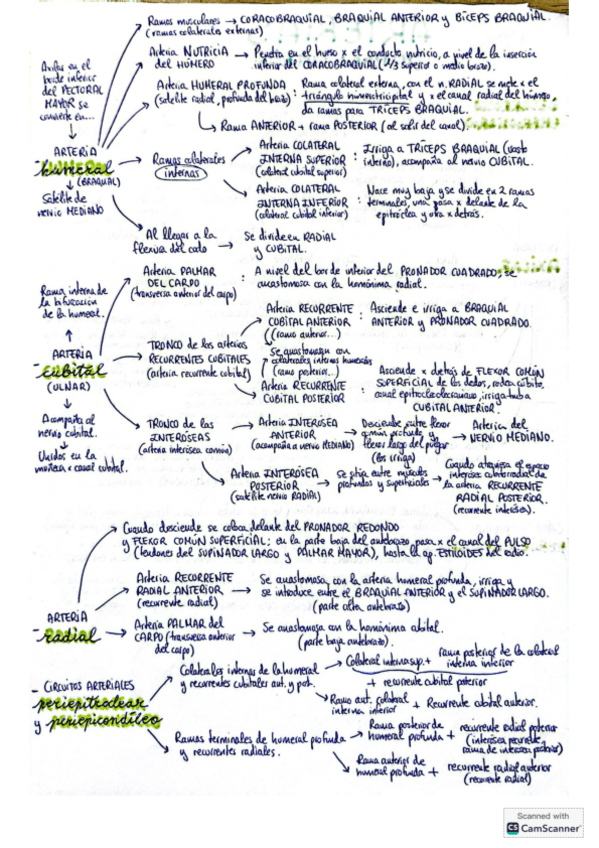 Ramas musculares → CORACOBRAQUIAL, BRAQUIAL ANTERIOR y BÍCEPS BRAQUIAL.
(ramas colaterales externas)
Arteria NUTRICIA → Penetra en el hueso x el conducto nutricio, a nivel de la inserción
del HÚMERO inferior del CORACOBRAQUIAL (1/3 superior o medio brazo).
Arteria HUMERAL PROFUNDA : Rama colateral externa, con el n. RADIAL se mete x el
(satélite radial, profunda del brazo) triángulo humerotricipital y x el canal radial del húmero,
da ramas para TRÍCEPS BRAQUIAL.
↳ Rama ANTERIOR + rama POSTERIOR (al salir del canal).
borde inferior
del PECTORAL
MAYOR se
convierte en...
ARTERIA
humeral
(BRAQUIAL)
Satélite de
nervio MEDIANO
Ramas colaterales
internas
Arteria COLATERAL
INTERNA SUPERIOR
(colateral cubital superior)
: Irriga a TRÍCEPS BRAQUIAL (vasto
interno), acompaña al nervio CUBITAL.
Arteria COLATERAL
INTERNA INFERIOR
(colateral cubital inferior)
: Nace muy baja y se divide en 2 ramas
terminales, una pasa x delante de la
epitróclea y otra x detrás.
Al llegar a la
flexura del codo
→ Se divide en RADIAL
y CUBITAL.
Rama interna de
la bifurcación
de la humeral.
ARTERIA
cubital
(ULNAR)
Acompaña al
nervio cubital.
Unidos en la
muñeca x canal cubital.
Arteria PALMAR
DEL CARPO
(transversa anterior del carpo)
: A nivel del borde inferior del PRONADOR CUADRADO, se
anastomosa con la homónima radial.
TRONCO de las arterias
RECURRENTES CUBITALES
(arteria recurrente cubital)
Arteria RECURRENTE
CUBITAL ANTERIOR
(ramo anterior...)
: Asciende e irriga a BRAQUIAL
ANTERIOR y PRONADOR CUADRADO.
Se anastomosan con
colaterales internas humerales
(ramo posterior...)
Arteria RECURRENTE
CUBITAL POSTERIOR
Asciende x detrás de FLEXOR COMÚN
SUPERFICIAL de los dedos, rodea cúbito,
canal epitrocleoolecraniano, irriga
CUBITAL ANTERIOR.
TRONCO de las
INTERÓSEAS
(arteria interósea común)
Arteria INTERÓSEA
ANTERIOR
(acompaña a nervio MEDIANO)
→ Desciende entre flexor
común profundo y
flexor largo del pulgar
(los irriga)
→ Arteria del
NERVIO MEDIANO.
Arteria INTERÓSEA
POSTERIOR
(satélite nervio RADIAL)
→ Se sitúa entre músculos
profundos y superficiales
→ Cuando atraviesa el espacio
interóseo
la arteria RECURRENTE
RADIAL POSTERIOR.
(recurrente interósea).
ARTERIA
radial
Cuando desciende se coloca delante del PRONADOR REDONDO
y FLEXOR COMÚN SUPERFICIAL; en la parte baja del antebrazo, pasa x el canal del PULSO
(tendones del SUPINADOR LARGO y PALMAR MAYOR), hasta la ap. ESTILOIDES del radio.
Arteria RECURRENTE
RADIAL ANTERIOR
(recurrente radial)
→ Se anastomosa, con la arteria humeral profunda, irriga y
se introduce entre el BRAQUIAL ANTERIOR y el SUPINADOR LARGO.
(parte alta antebrazo)
Arteria PALMAR del
CARPO (transversa anterior
del carpo)
→ Se anastomosa con la homónima cubital.
(parte baja antebrazo).
- CIRCUITOS ARTERIALES
periepitroclear
y periepicondíleo
Colaterales internas de la humeral
y recurrentes cubitales ant. y post.
Colateral interna sup. + rama posterior de la colateral
interna inferior
+ recurrente cubital posterior
Ramo ant. colateral
interna inferior + Recurrente cubital anterior.
Ramas terminales de humeral profunda
y recurrentes radiales.
Rama posterior de
humeral profunda + recurrente radial posterior
(interósea recurrente,
rama de interósea posterior)
Rama anterior de
humeral profunda + recurrente radial anterior
(recurrente radial)
Scanned with
CS CamScanner